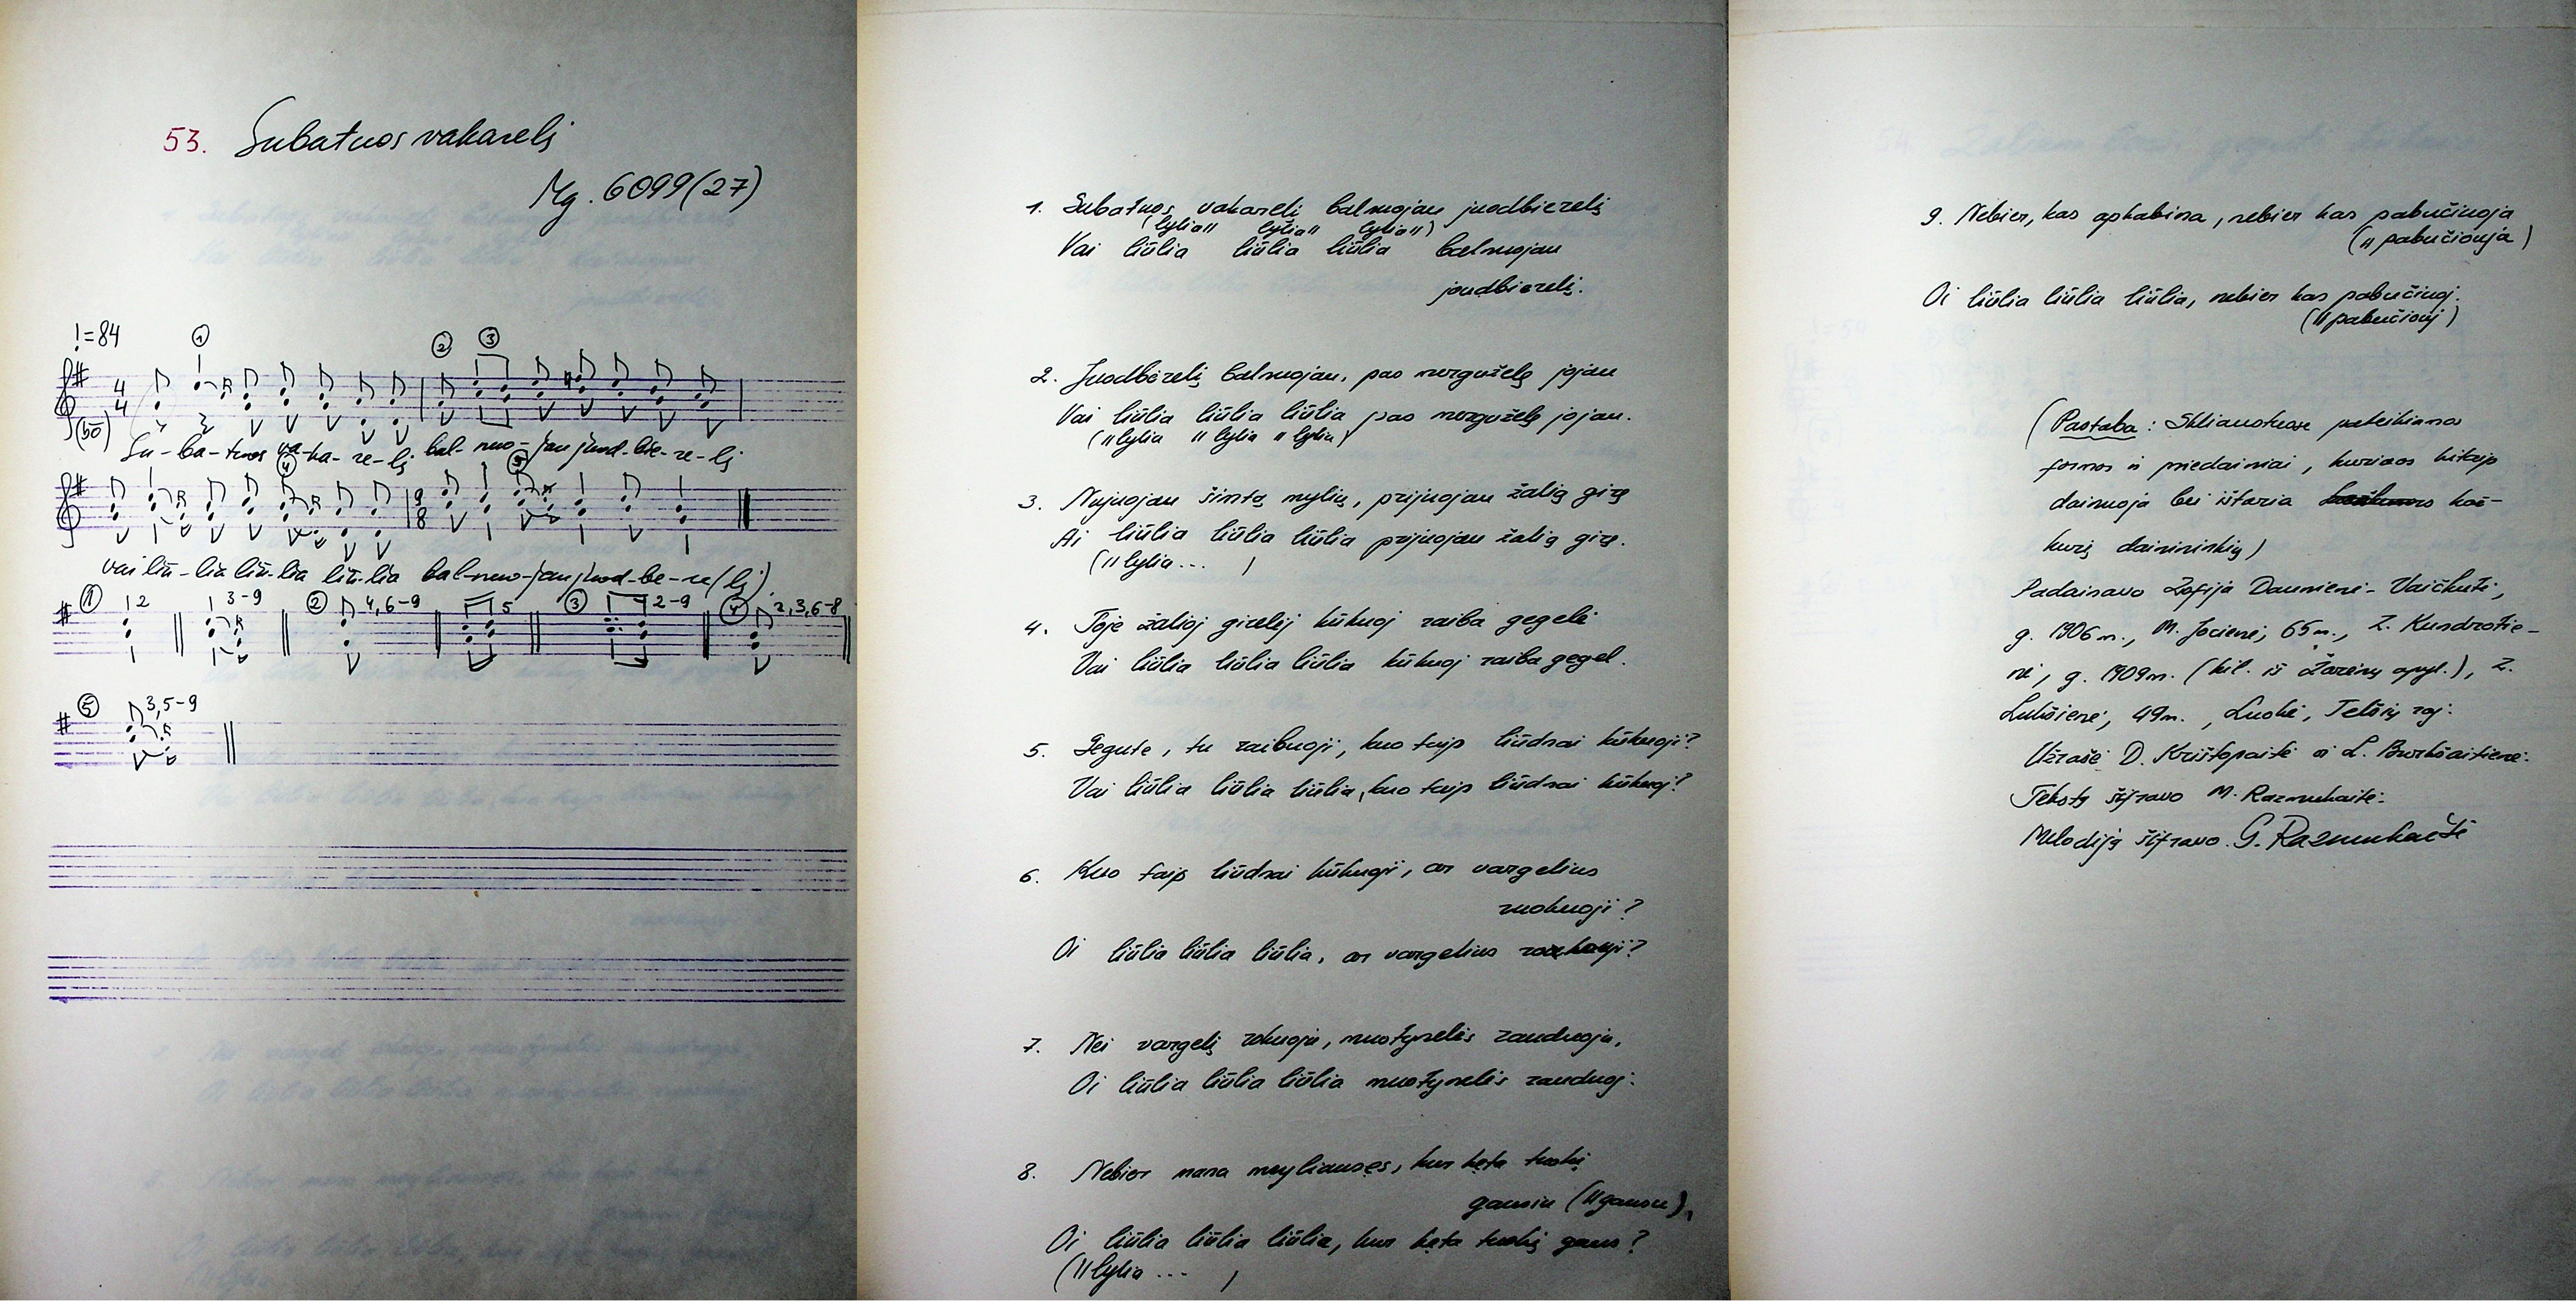 53. Subatuos vakarelį
Mg. 6099(27)
=84
① ② ③
4
4
Su-ba-tuos va-ka-re-lį bal-nuo-jau juod-bie-re-lį
④ ⑤
9
8
vai liū-lia liū-lia liū-lia bal-nuo-jau juod-bė-re(lį).
① 2 3-9 ② 4,6-9 5 ③ 2-9 ④ 2,3,6-8
⑤ 3,5-9
1. Subatuos vakarelį balnuojau juodbierelį
(lylia〃 lylia〃 lylia〃)
Vai liūlia liūlia liūlia balnuojau
joudbierelį.
2. Juodbėrelį balnuojau, pas mergužėlę jojau
Vai liūlia liūlia liūlia pas mergužėlę jojau.
(〃lylia 〃lylia 〃lylia)
3. Nujuojau šimtą mylių, prijuojau žalią girę
Ai liūlia liūlia liūlia prijuojau žalią girę.
(〃lylia... )
4. Toje žalioj girelėj kūkuoj raiba gegelė
Vai liūlia liūlia liūlia kūkuoj raiba gegel.
5. Gegute, tu raibuoji, kuo taip liūdnai kūkuoji?
Vai liūlia liūlia liūlia, kuo taip liūdnai kūkuoj?
6. Kuo taip liūdnai kūkuoji, ar vargelius
ruokuoji?
Oi liūlia liūlia liūlia, ar vargelius
7. Nei vargelį rokuoju, nuotynelės rauduoju,
Oi liūlia liūlia liūlia nuotynelės rauduoj.
8. Nebier mana myliauses, kur kęta tuokį
gausiu (〃gausu),
Oi liūlia liūlia liūlia, kur kęta tuokį gaus?
(〃lylia ... )
9. Nebier, kas apkabina, nebier kas pabučiuoja
(〃pabučiouja)
Oi liūlia liūlia liūlia, nebier kas pabučiuoj.
(〃pabučiouj)
(Pastaba: Skliaustuose pateikiamos
formos ir priedainiai, kuriuos kitaip
dainuoja bei ištaria kaž-
kurių dainininkių)
Padainavo Zofija Daunienė-Vaičkutė,
g. 1906 m., M. Jocienė, 65 m., Z. Kundrotie-
nė, g. 1909 m. (kil. iš Žarėnų apyl.), Z.
Lukšienė, 49 m., Luokė, Telšių raj.
Užrašė D. Krištopaitė ir L. Burkšaitienė.
Tekstą šifravo M. Razmukaitė.
Melodiją šifravo G. Razmukaitė